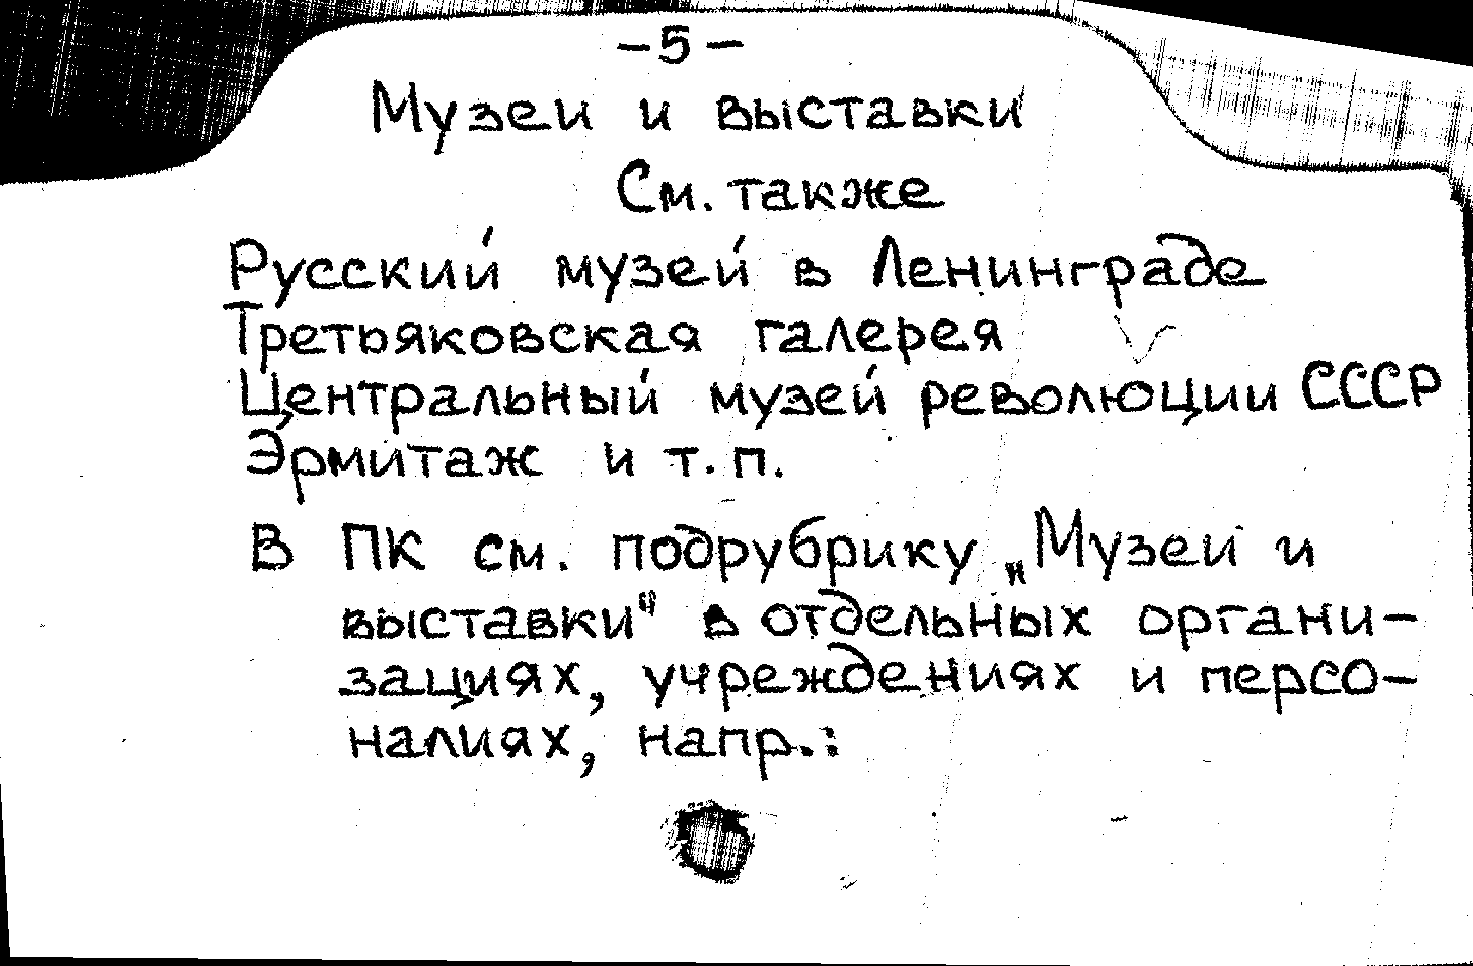 -5-
Музеи и выставки
См. также
Русский музей в Ленинграде
Третьяковская галерея
Центральный музей революции СССР
Эрмитаж и т.п.
В ПК см. подрубрику „Музеи и
выставки" в отдельных органи-
зациях, учреждениях и персо-
налиях, напр.: